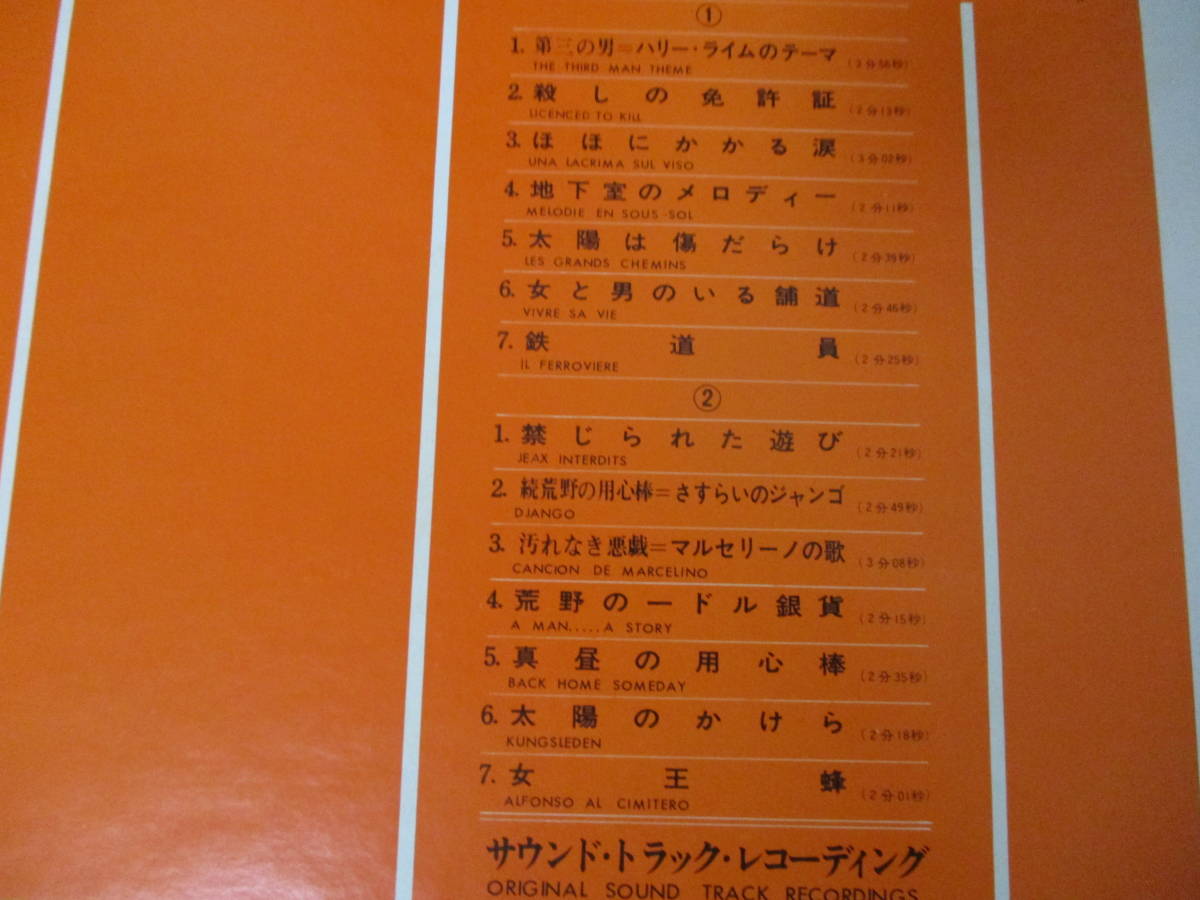 ①
1. 第三の男＝ハリー・ライムのテーマ (3分56秒)
THE THIRD MAN THEME
2. 殺しの免許証 (2分13秒)
LICENCED TO KILL
3. ほほにかかる涙 (3分02秒)
UNA LACRIMA SUL VISO
4. 地下室のメロディー (2分11秒)
MELODIE EN SOUS-SOL
5. 太陽は傷だらけ (2分39秒)
LES GRANDS CHEMINS
6. 女と男のいる舗道 (2分46秒)
VIVRE SA VIE
7. 鉄道員 (2分25秒)
IL FERROVIERE
②
1. 禁じられた遊び (2分21秒)
JEAX INTERDITS
2. 続荒野の用心棒＝さすらいのジャンゴ (2分49秒)
DJANGO
3. 汚れなき悪戯＝マルセリーノの歌 (3分08秒)
CANCION DE MARCELINO
4. 荒野の一ドル銀貨 (2分15秒)
A MAN.....A STORY
5. 真昼の用心棒 (2分35秒)
BACK HOME SOMEDAY
6. 太陽のかけら (2分18秒)
KUNGSLEDEN
7. 女王蜂 (2分01秒)
ALFONSO AL CIMITERO
サウンド・トラック・レコーディング
ORIGINAL SOUND TRACK RECORDINGS